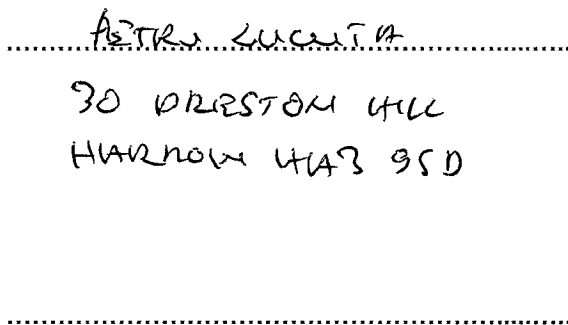 PETRU LUCUTA
30 PRESTON HILL
HARROW HA3 9SD